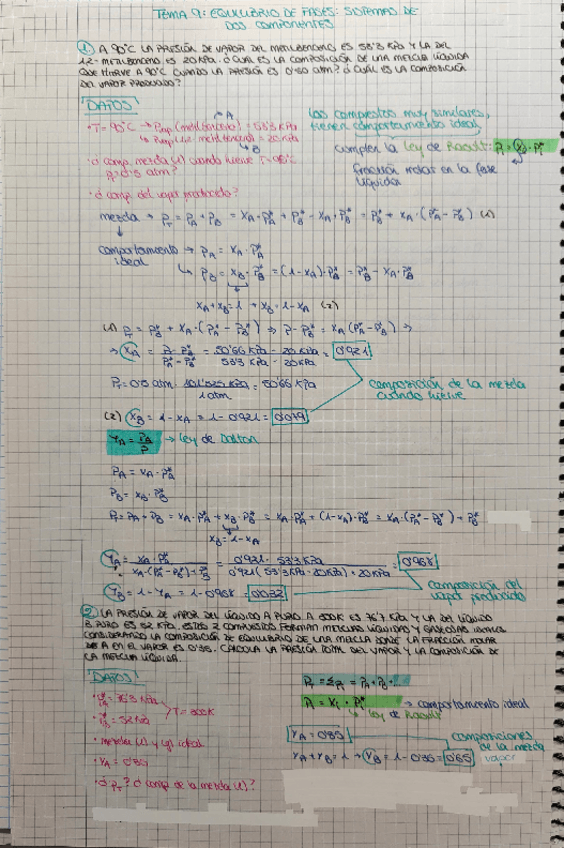 TEMA 9: EQUILIBRIO DE FASES: SISTEMAS DE
DOS COMPONENTES
① A 90°C LA PRESIÓN DE VAPOR DEL METILBENCENO ES 53'3 KPa Y LA DEL
1,2-METILBENCENO ES 20 KPa. ¿CUÁL ES LA COMPOSICIÓN DE UNA MEZCLA LÍQUIDA
QUE HIERVE A 90°C CUANDO LA PRESIÓN ES 0'50 atm? ¿CUÁL ES LA COMPOSICIÓN
DEL VAPOR PRODUCIDO?
DATOS
→ A
· T = 90°C → Pvap (metilbenceno) = 53'3 KPa
↳ Pvap (1,2-metilbenceno) = 20 KPa
↳ B
· ¿comp. mezcla (l) cuando hierve T = 90°C
P = 0'5 atm?
· ¿comp. del vapor producido?
Los compuestos muy similares,
tienen comportamiento ideal
cumplen la Ley de Raoult: Pi = Xi · Pi*
fracción molar en la fase
líquida
mezcla → PT = PA + PB = XA · PA* + PB* - XA · PB* = PB* + XA · (PA* - PB*) (1)
comportamiento → PA = XA · PA*
ideal
↳ PB = XB · PB* = (1 - XA) · PB* = PB* - XA · PB*
XA + XB = 1 → XB = 1 - XA (2)
(1) PT = PB* + XA · (PA* - PB*) ⇒ P - PB* = XA (PA* - PB*) ⇒
⇒ XA = P - PB* / PA* - PB* = 50'66 KPa - 20 KPa / 53'3 KPa - 20 KPa = 0'921
PT = 0'5 atm · 101'325 KPa / 1 atm = 50'66 KPa
composición de la mezcla
cuando hierve
(2) XB = 1 - XA = 1 - 0'921 = 0'079
YA = PA / P → Ley de Dalton
PA = XA · PA*
PB = XB · PB*
PT = PA + PB = XA · PA* + XB · PB* = XA · PA* + (1 - XA) · PB* = XA · (PA* - PB*) + PB*
XB = 1 - XA
YA = XA · PA* / XA · (PA* - PB*) + PB* = 0'921 · 53'3 KPa / 0'921 (53'3 KPa - 20 KPa) + 20 KPa = 0'968
YB = 1 - YA = 1 - 0'968 = 0'032
composición del
vapor producido
② LA PRESIÓN DE VAPOR DEL LÍQUIDO A PURO A 300K ES 76'7 KPa Y LA DEL LÍQUIDO
B PURO ES 52 KPa. ESTOS 2 COMPUESTOS FORMAN MEZCLAS LÍQUIDAS Y GASEOSAS IDEALES
CONSIDERANDO LA COMPOSICIÓN DE EQUILIBRIO DE UNA MEZCLA DONDE LA FRACCIÓN MOLAR
DE A EN EL VAPOR ES 0'35. CALCULA LA PRESIÓN TOTAL DEL VAPOR Y LA COMPOSICIÓN DE
LA MEZCLA LÍQUIDA.
DATOS
T = 300K
· mezclas (l) y (g) ideal
· YA = 0'35
· ¿PT? ¿comp de la mezcla (l)?
PT = ΣPi = PA + PB
Pi = Xi · Pi* → comportamiento ideal
↳ Ley de Raoult
YA = 0'35
YA + YB = 1 → YB = 1 - 0'35 = 0'65
composiciones
de la mezcla
vapor